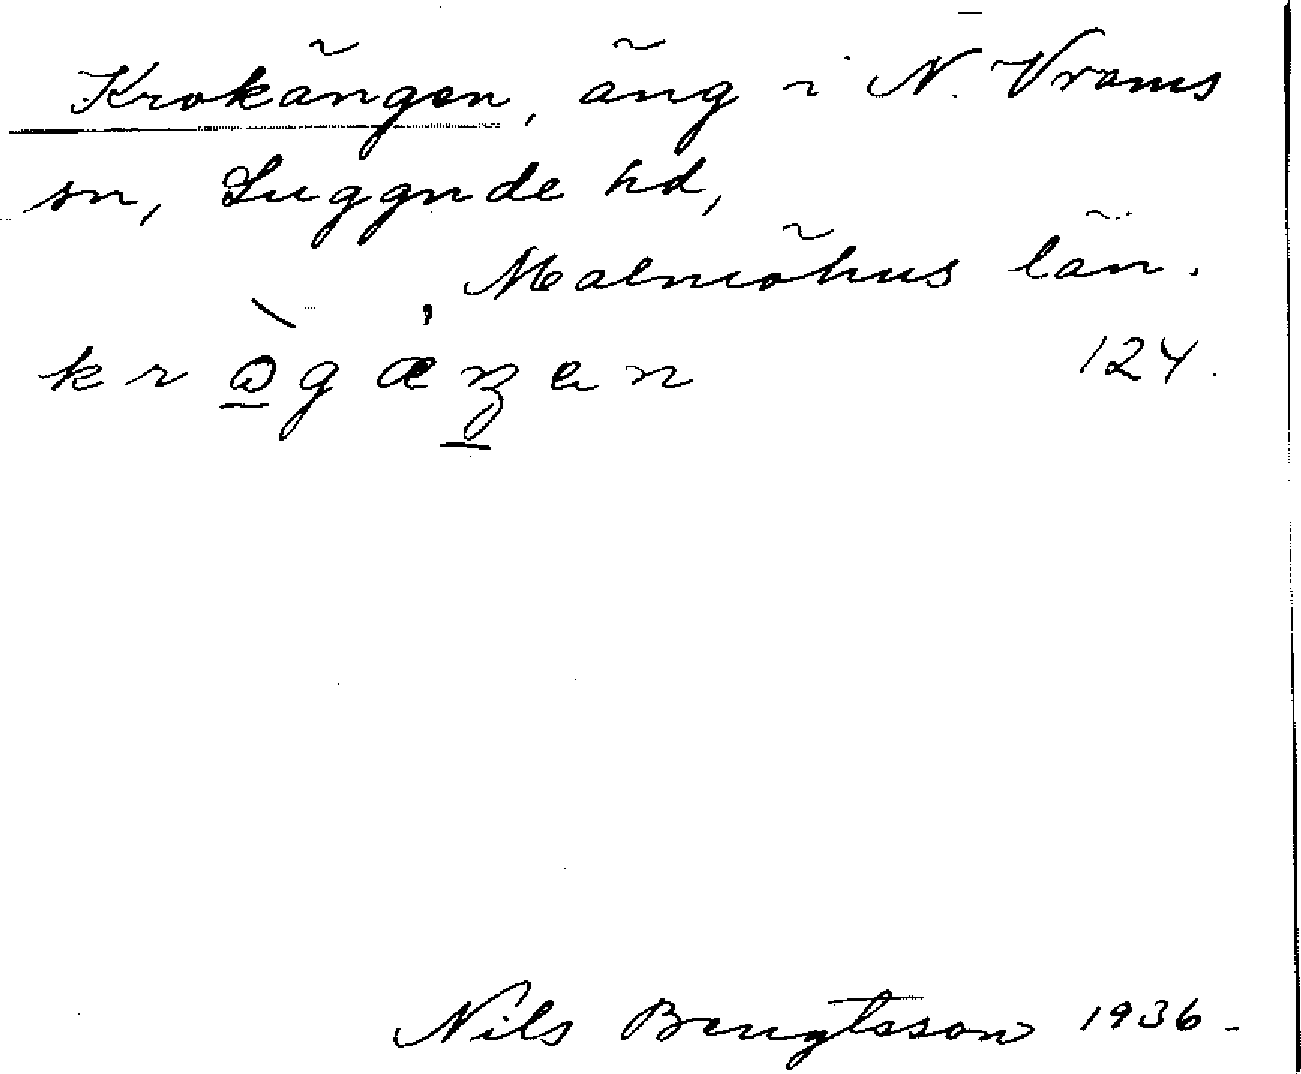 Krokängen, äng i N. Vrams
sn, Luggude hd,
Malmöhus län.
124.
Nils Bengtsson 1936